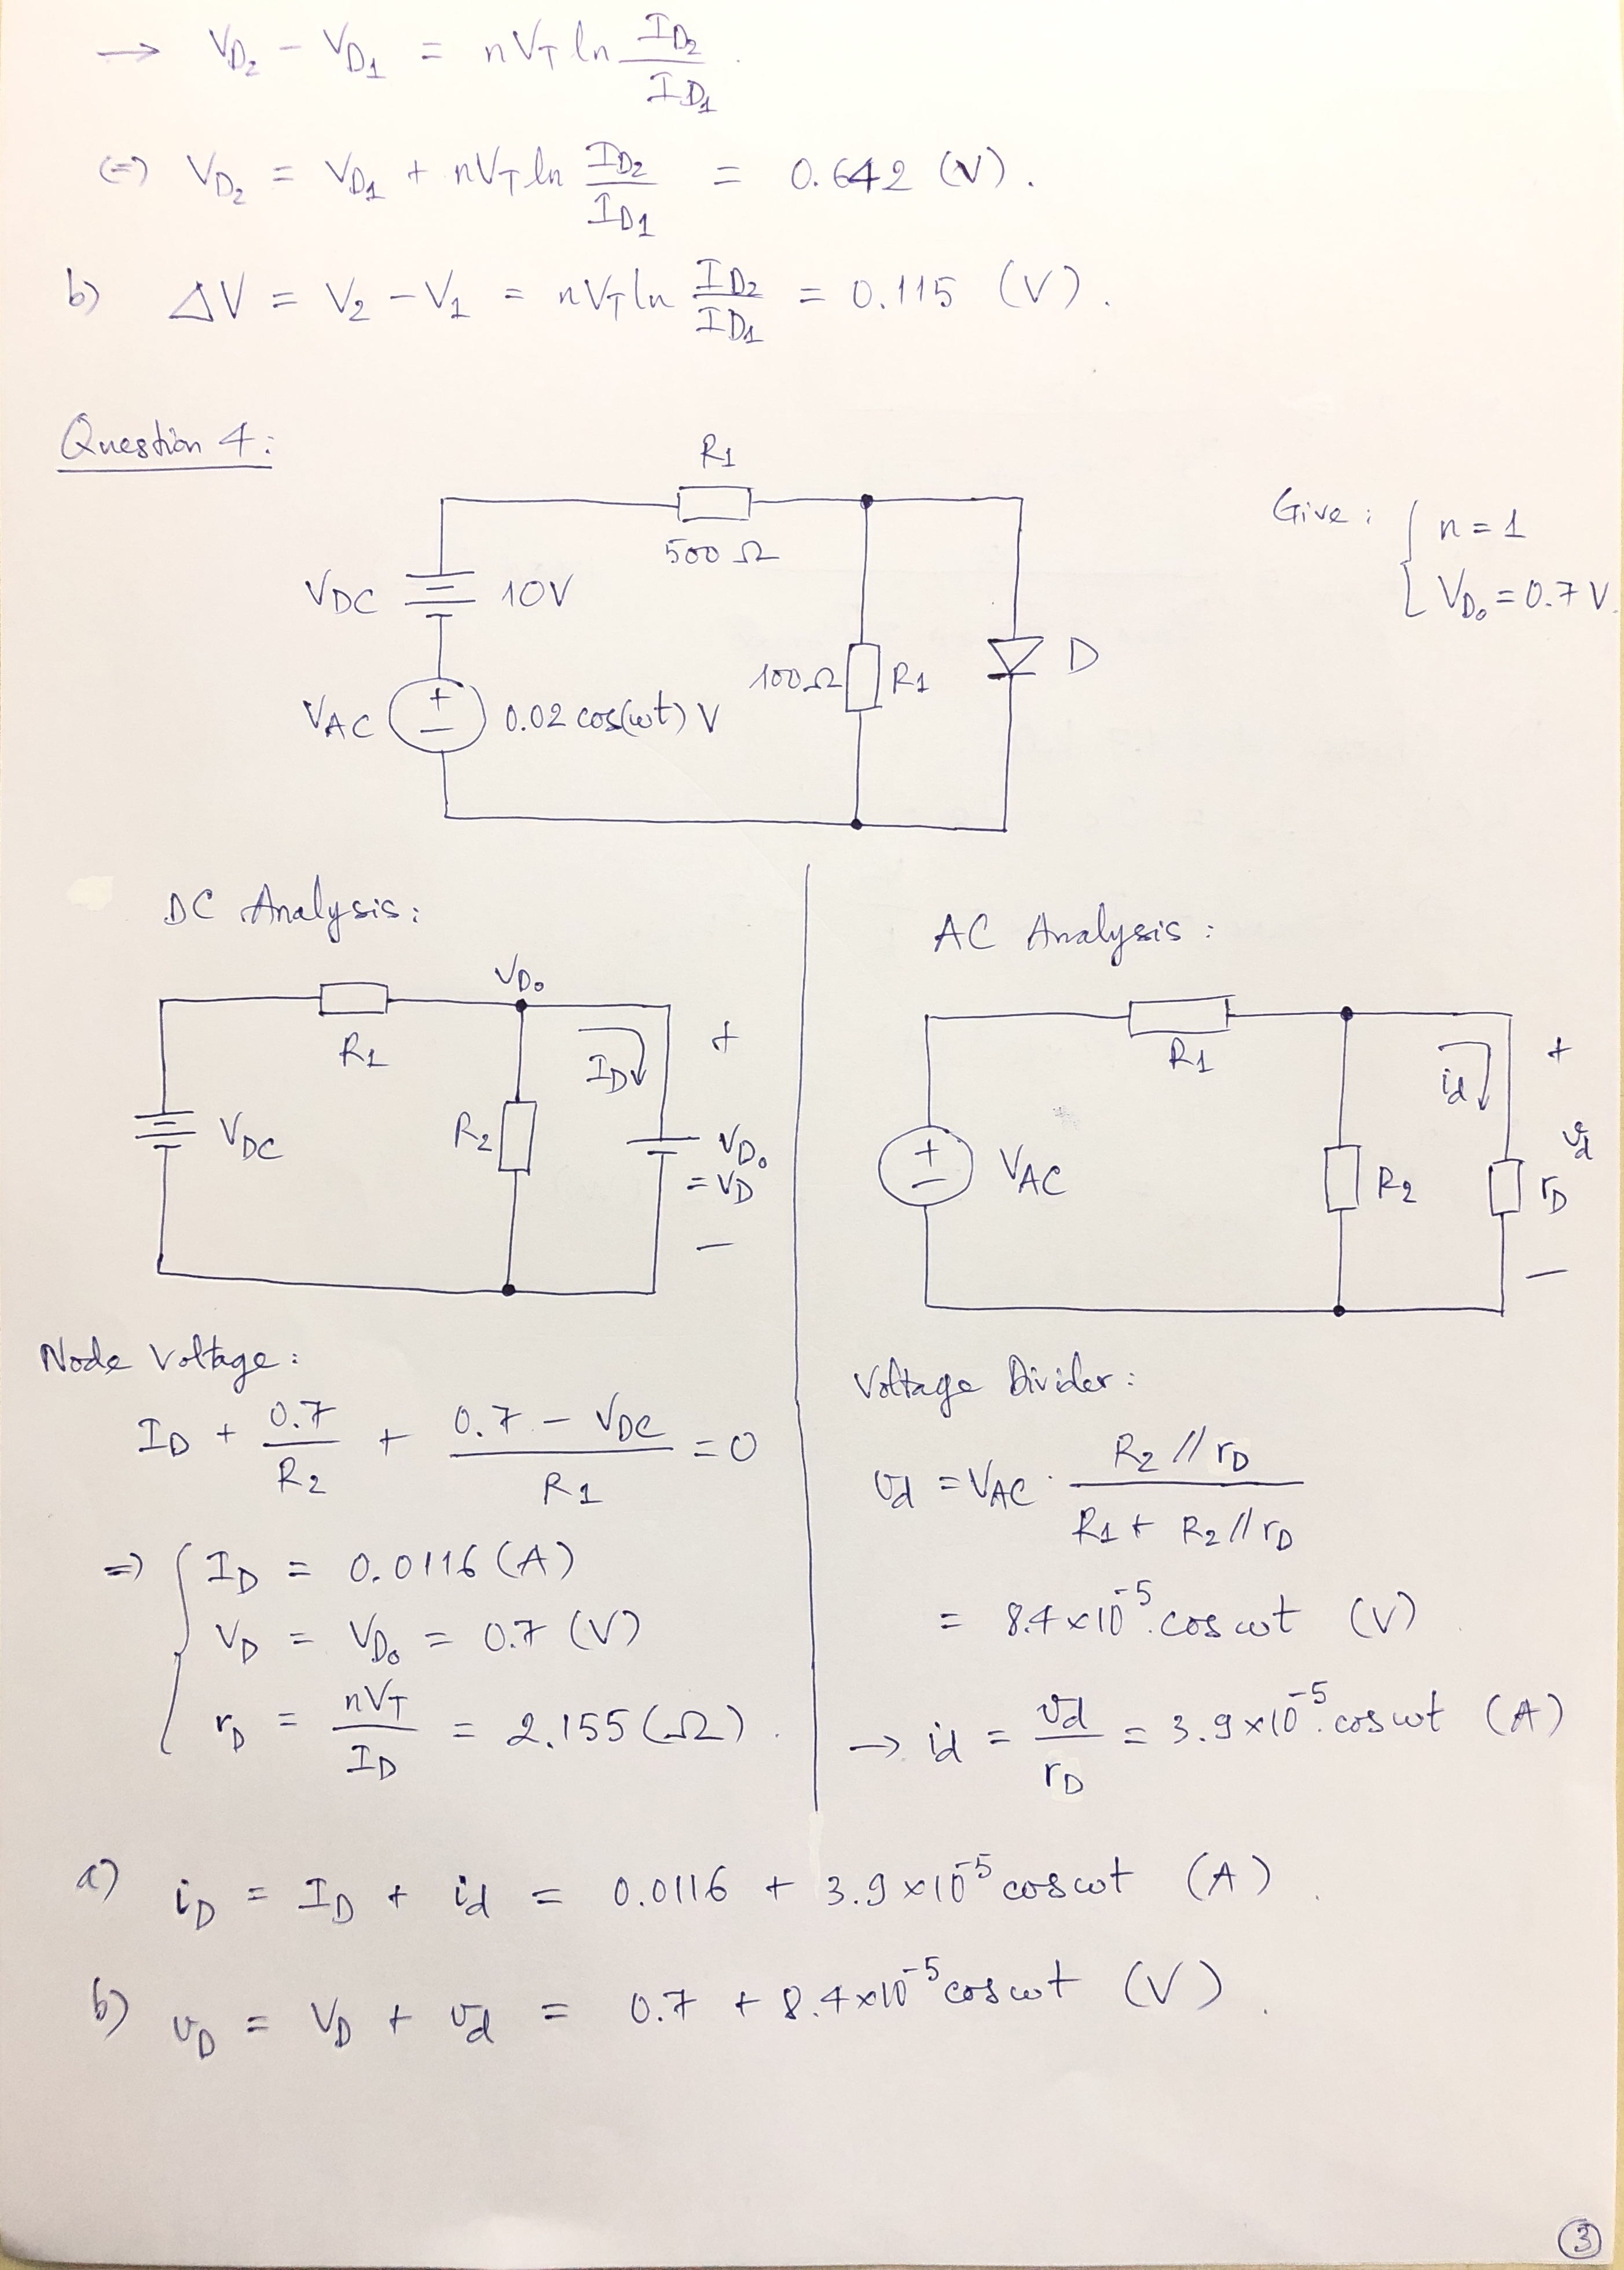 → V_D2 - V_D1 = nV_T ln I_D2 / I_D1 .
(=) V_D2 = V_D1 + nV_T ln I_D2 / I_D1 = 0.642 (V).
b) ΔV = V_2 - V_1 = nV_T ln I_D2 / I_D1 = 0.115 (V).
Question 4:
R1
500 Ω
VDC 10V
VAC + - 0.02 cos(ωt) V
100Ω R1
D
Give: { n = 1
V_D0 = 0.7 V.
DC Analysis:
V_D0
R1
VDC
R2
I_D
+
V_D0
= V_D
-
Node Voltage:
I_D + 0.7 / R2 + 0.7 - VDC / R1 = 0
=) { I_D = 0.0116 (A)
V_D = V_D0 = 0.7 (V)
r_D = nV_T / I_D = 2.155 (Ω).
AC Analysis:
R1
+ - VAC
R2
id
+
vd
rD
-
Voltage Divider:
vd = VAC . R2 // rD / R1 + R2 // rD
= 8.4 x 10^-5 . cos ωt (V)
→ id = vd / rD = 3.9 x 10^-5 . cos ωt (A)
a) iD = I_D + id = 0.0116 + 3.9 x 10^-5 cos ωt (A).
b) vD = V_D + vd = 0.7 + 8.4 x 10^-5 cos ωt (V).
3